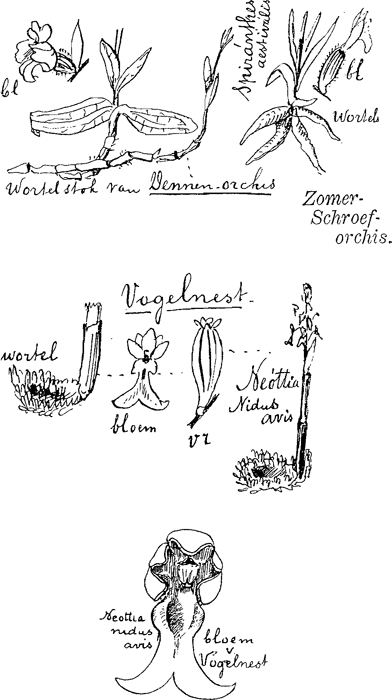 bl
Spiránthes
aestivális
bl
Wortels
Wortelstok van Dennen-orchis
Zomer-
Schroef-
orchis.
Vogelnest.
wortel
bloem
vr
Neóttia
Nidus
avis
Neottia
nidus
avis
bloem
v
Vogelnest